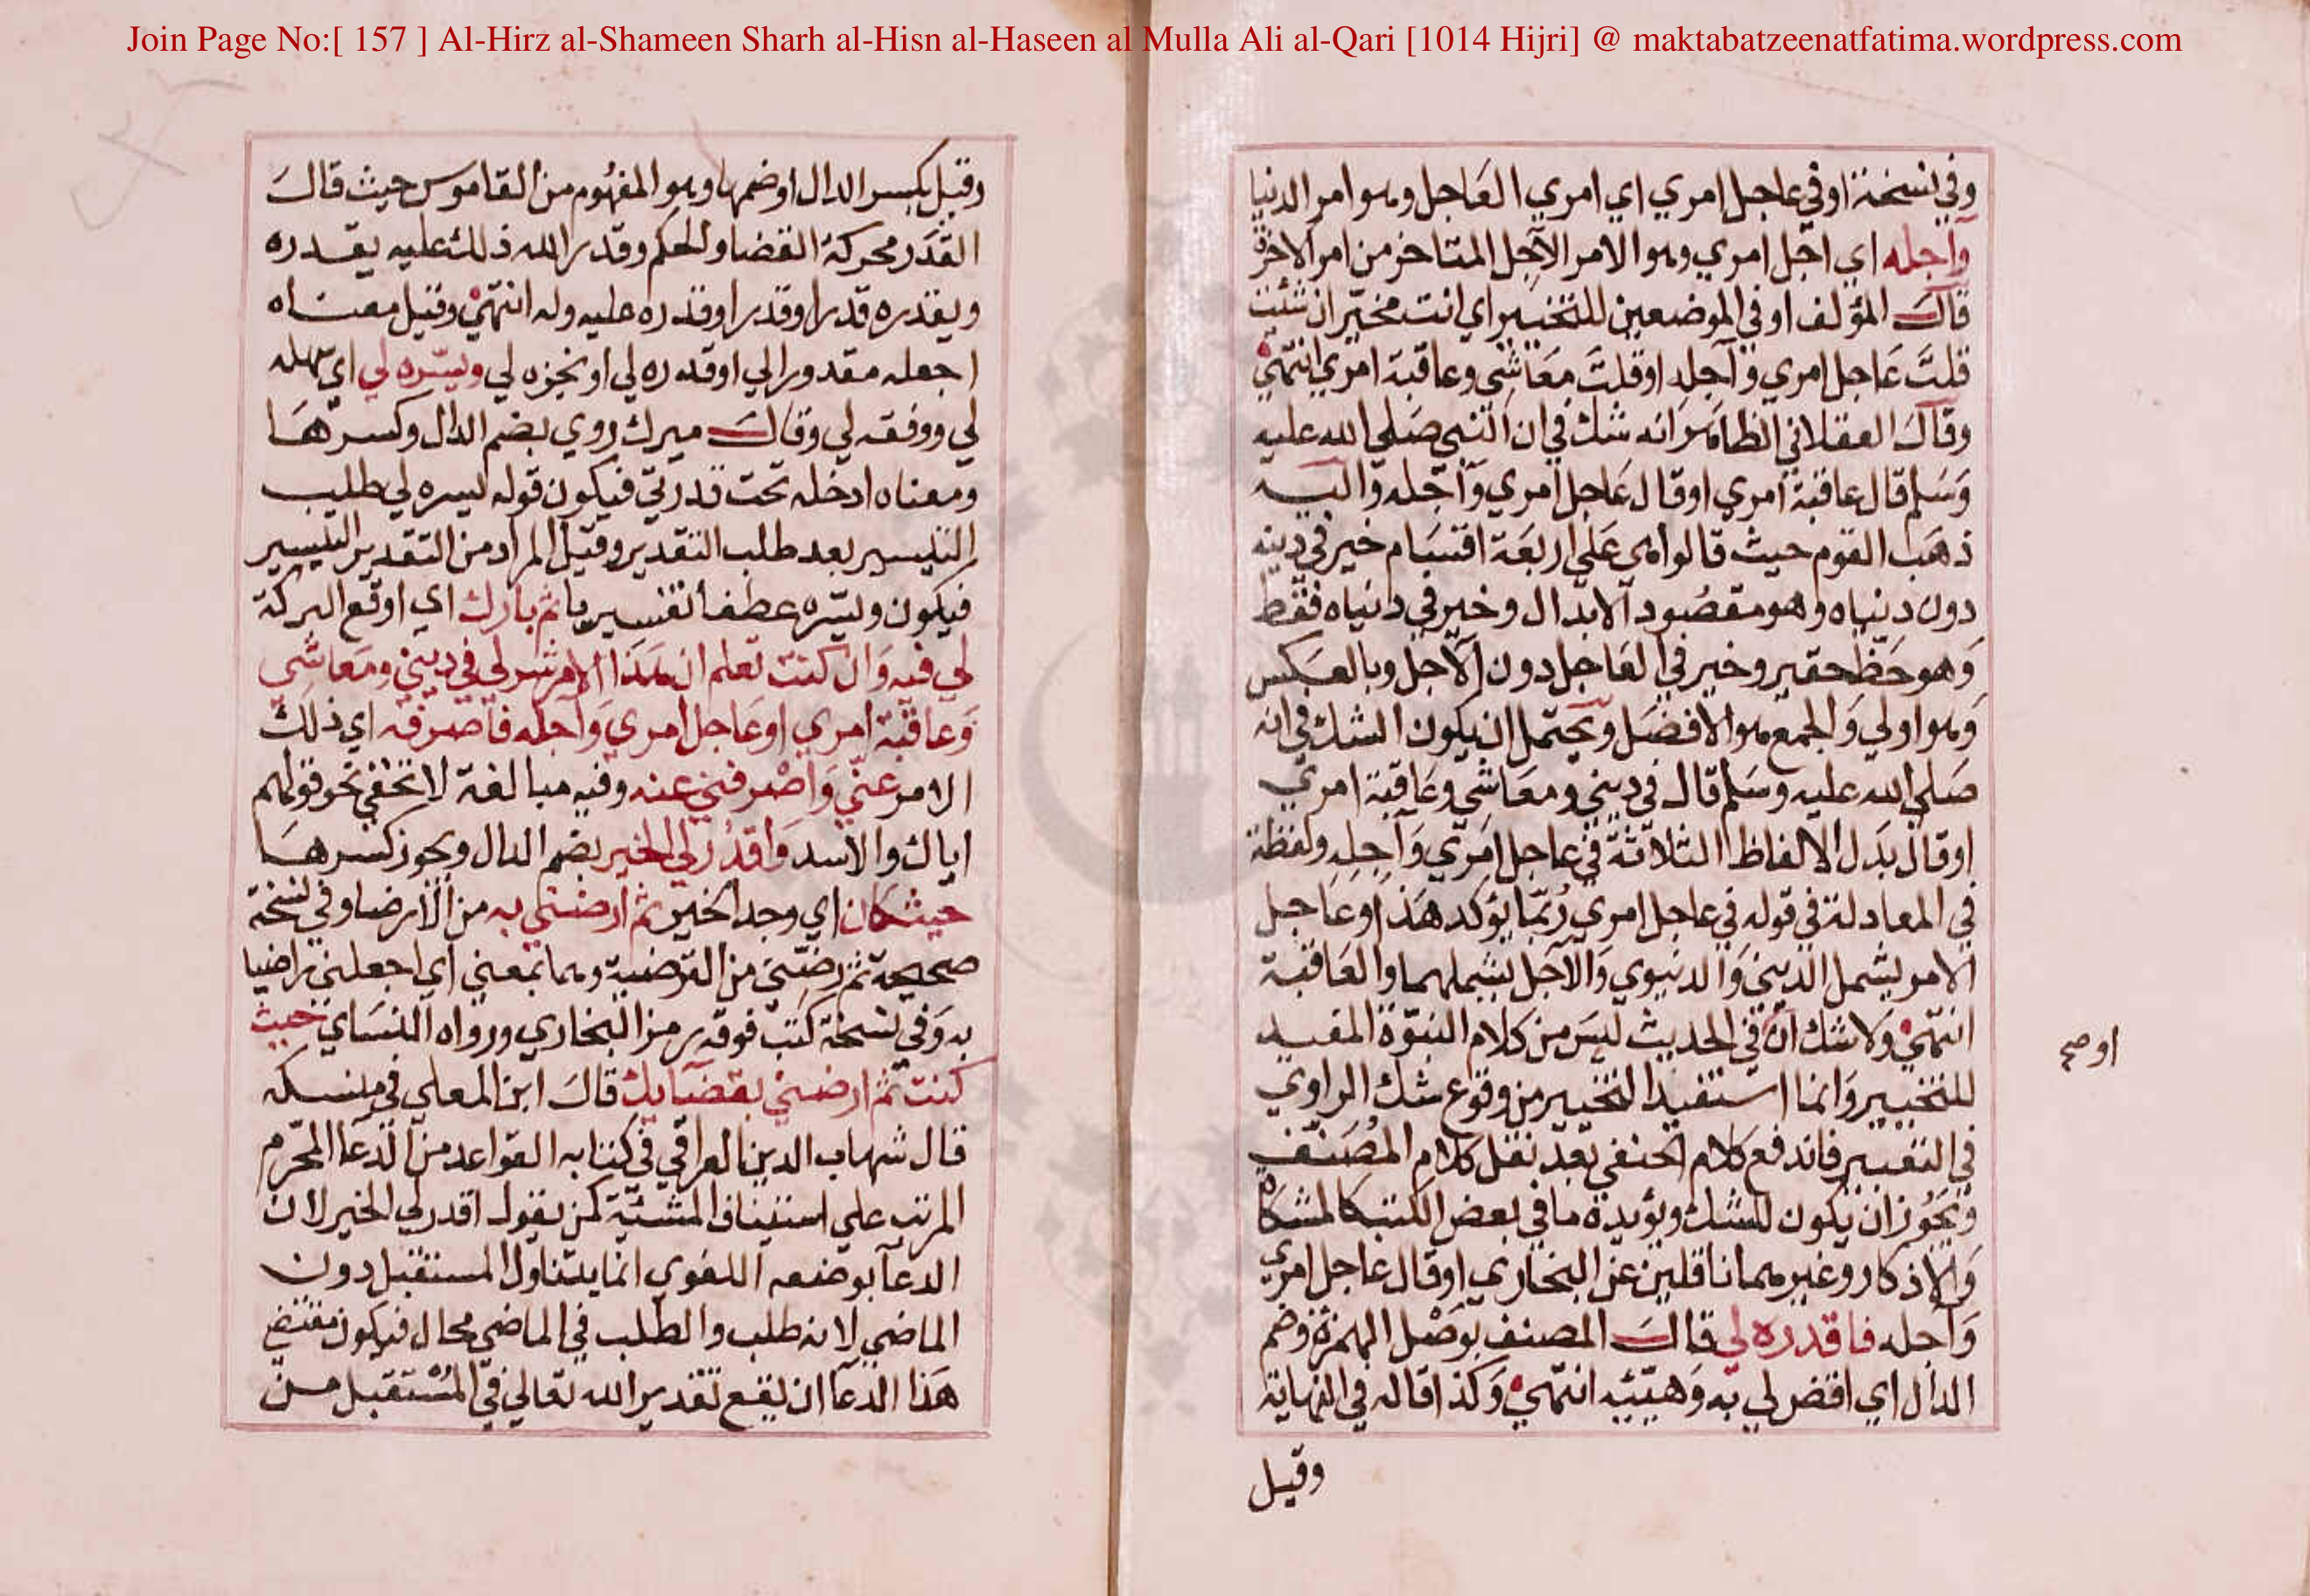 Join Page No:[ 157 ] Al-Hirz al-Shameen Sharh al-Hisn al-Haseen al Mulla Ali al-Qari [1014 Hijri] @ maktabatzeenatfatima.wordpress.com
وفي نسخة او في عاجل امري اي امري العاجل وهو امر الدنيا
وآجله اي اجل امري وهو الامر الآجل المتاخر من امر الاخرة
قالَ المؤلف او في الموضعين للتخيير اي انت مخيّر ان شئت
قلتَ عَاجل امري وآجله او قلتَ مَعَاشي وعاقبة امري انتهيٰ
وقالَ العقلاني الظاهر انه شك في ان النبي صَلي الله عليه
وَسَلم قال عاقبة امري او قال عَاجل امري وَآجله واليه
ذهَب القوم حيث قالوا هي عَلي اربعَة اقسَام خير في دينه
دون دنياه وهو مقصُود الابدال وخير في دنياه فقط
وَهو حَظ حقير وخير في العَاجل دون الآجل وبالعَكس
وَهو اولي وَالجمع هو الافضَل ويحتمل ان يكون الشك في انه
صَلي الله عليه وسَلم قال في ديني ومعَاشي وعَاقبة امري
او قال بدَل الالفاظ الثلاثة في عاجل امَري وَآجِلِه ولفظة
في المعادلة في قوله في عاجل امري رُبّما يؤكد هَذا وعَاجل
الامر يشمل الديني وَالدنيوي وَالآجل يشملهما والعَاقبة
انتهيٰ وَلا شك انّ في الحديث ليسَ من كلام النبوّة المفيد
للتخيير وَانما استفيد التخيير من وقوع شك الراوي
في التعبير فاندفع كلام الحنفي بعد نقل كلام المُصَنّف
وَيَجُوز ان يكون للشك ويؤيده ما في بعض الكتب كالمشكاة
وَالاذكار وغيرهما ناقلين عن البخاري او قال عاجل امري
وَآجله فاقدره لي قالَ المصنف بوَصْل الهمزة وضم
الدال اي اقض لي به وَهيّئه انتهيٰ وَكذا قاله في النهاية
وقيل
او صح
وقيل بكسر الدال او ضمها وهو المفهُوم من القاموس حيث قالَ
القدَر محركة القضا والحكم وقدر الله ذلك عليه يقدره
ويقدره قدرا وقدرا وقدره عليه وله انتهيٰ وقيل معناه
اجعله مقدورا لي او قدره لي او نجزه لي ويسّره لي اي سهله
لي ووفقه لي وقالَ ميرك روي بضم الدال وكسرهَا
ومعناه ادخله تحت قدرتي فيكون قوله يسره لي طلب
التيسير بعد طلب التقدير وقيل المراد من التقدير التيسير
فيكون ويسّره عطفا تفسيريا ثم بارك اي اوقع البركة
لي فيه وَان كنت تعلم ان هَذا الامر شر لي في ديني ومَعَاشي
وَعاقبَة امري او عَاجل امري وَآجله فاصرفه اي ذلك
الامر عنّي وَاصْرفني عنه وفيه مبالغة لا تخفي نحو قولهم
اياك والاسد وَاقدُر لي الخير بضم الدال ويجوز كسرهَا
حيث كان اي وجد الخير ثم ارضني به من الارضا وفي نسخة
صحيحة ثم رضّني من الترضية وهما بمعني اي اجعلني راضيا
به وَفي نسخة كتب فوقه رمز البخاري ورواه النسَاي حيث
كنت ثم ارضني بقضَايك قالَ ابن المعلي في منسكه
قال شهاب الدين العراقي في كتابه القواعد من الدعا المحرّم
المرتب علي استيناف المشئيّة كمن يقول اقدر لي الخير لان
الدعآ بوضعه اللغوي انما يتناول المستقبل دون
الماضي لانه طلب والطلب في الماضي محال فيكون مقتضي
هَذا الدعآ ان يقع تقدير الله تعالي في المُسْتقبل من